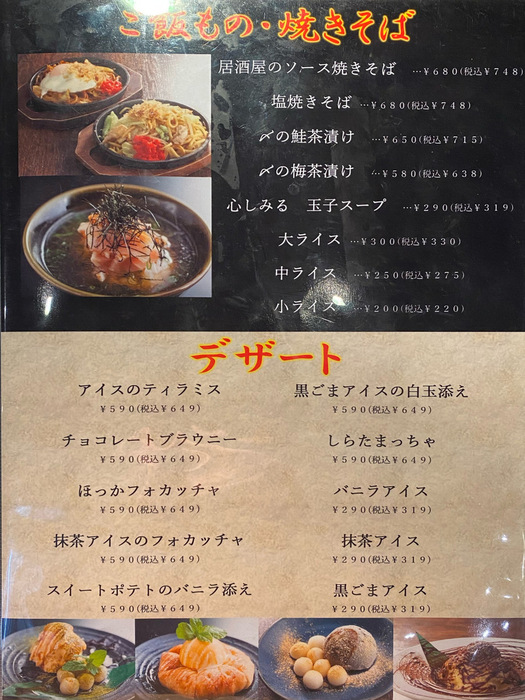 ご飯もの・焼きそば
居酒屋のソース焼きそば …￥680(税込￥748)
塩焼きそば …￥680(税込￥748)
〆の鮭茶漬け …￥650(税込￥715)
〆の梅茶漬け …￥580(税込￥638)
心しみる 玉子スープ …￥290(税込￥319)
大ライス …￥300(税込￥330)
中ライス …￥250(税込￥275)
小ライス …￥200(税込￥220)
デザート
アイスのティラミス
￥590(税込￥649)
チョコレートブラウニー
￥590(税込￥649)
ほっかフォカッチャ
￥590(税込￥649)
抹茶アイスのフォカッチャ
￥590(税込￥649)
スイートポテトのバニラ添え
￥590(税込￥649)
黒ごまアイスの白玉添え
￥590(税込￥649)
しらたまっちゃ
￥590(税込￥649)
バニラアイス
￥290(税込￥319)
抹茶アイス
￥290(税込￥319)
黒ごまアイス
￥290(税込￥319)